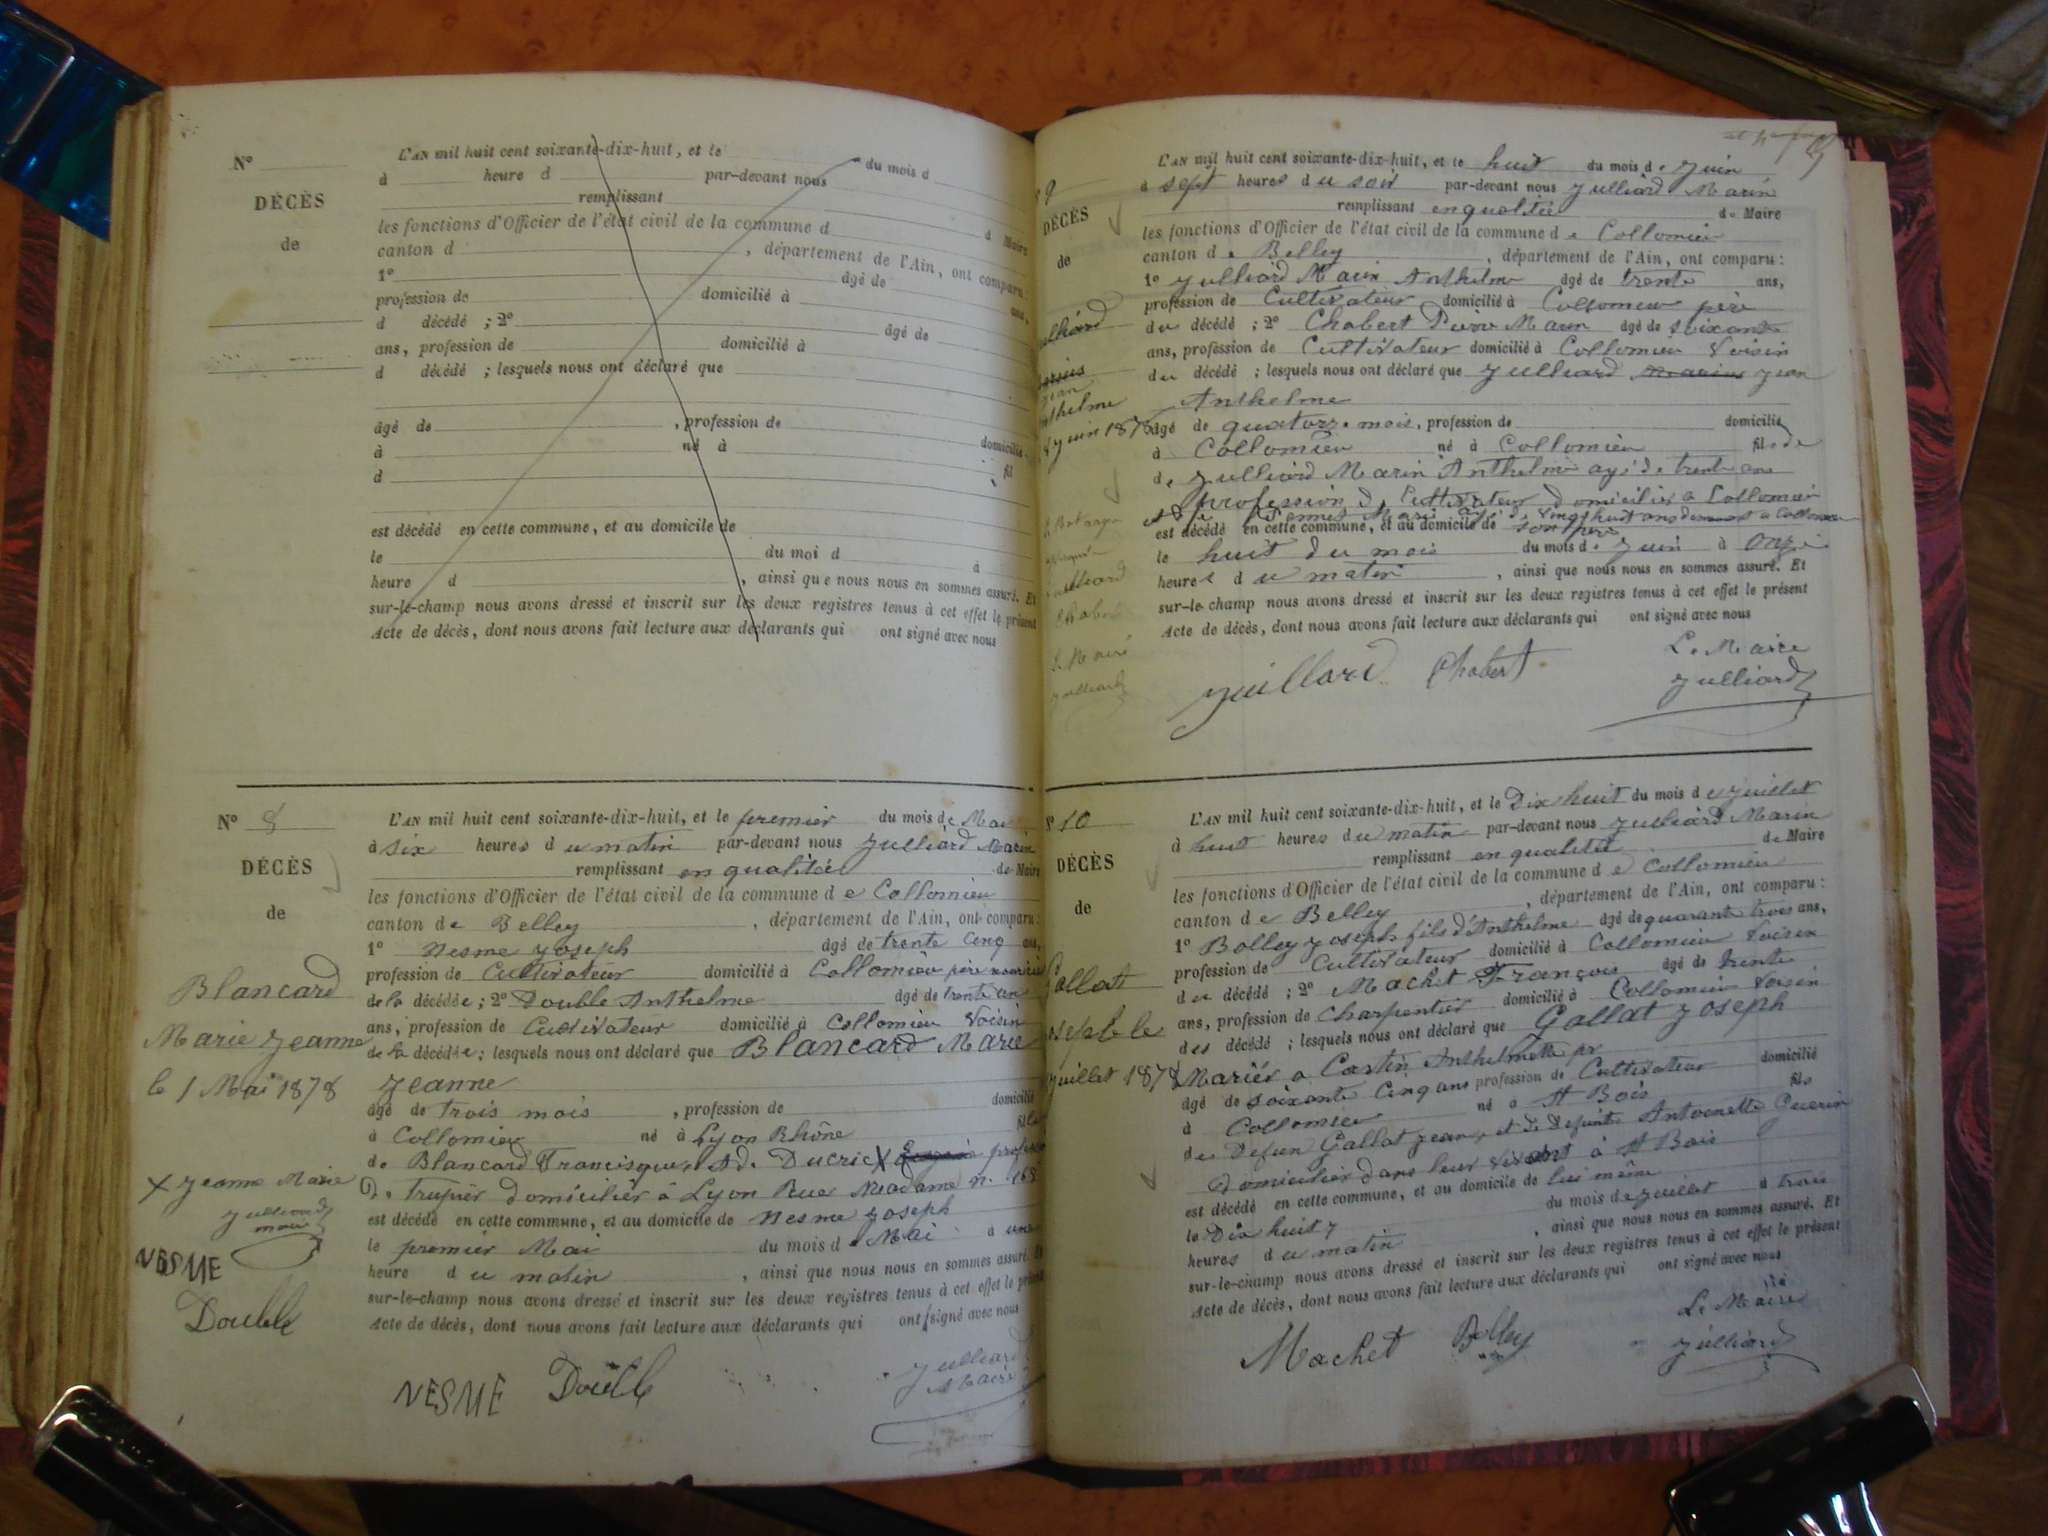 N°
DÉCÈS
de
L'AN mil huit cent soixante-dix-huit, et le du mois d
à heure d par-devant nous
remplissant
les fonctions d'Officier de l'état civil de la commune d d Maire
canton d , département de l'Ain, ont comparu :
1° âgé de ans,
profession de domicilié à
d décédé ; 2° âgé de
ans, profession de domicilié à
d décédé ; lesquels nous ont déclaré que
âgé de , profession de
à né à domicilié
d fil
est décédé en cette commune, et au domicile de
le du moi d à
heure d , ainsi que nous nous en sommes assuré. Et
sur-le-champ nous avons dressé et inscrit sur les deux registres tenus à cet effet le présent
Acte de décès, dont nous avons fait lecture aux déclarants qui ont signé avec nous
N° 8
DÉCÈS
de
Blancard
Marie Jeanne
le 1 Mai 1878
X Jeanne Marie
Julliard
maire
NESME
Double
L'AN mil huit cent soixante-dix-huit, et le premier du mois de Mai
à six heures du matin par-devant nous Julliard Marin
remplissant en qualitée de Maire
les fonctions d'Officier de l'état civil de la commune de Collomieu
canton de Belley , département de l'Ain, ont comparu :
1° Nesme Joseph âgé de trente cinq ans,
profession de Cultivateur domicilié à Collomieu père nourricier
de la décédée ; 2° Double Anthelme âgé de trente
ans, profession de Cultivateur domicilié à Collomieu Voisin
de la décédée ; lesquels nous ont déclaré que Blancard Marie
Jeanne
âgé de trois mois , profession de domicilié
à Collomieu né à Lyon Rhône fille
de Blancard Francisque, et de Ducric X
de Trupier domiciliér à Lyon Rue Madame n.
est décédé en cette commune, et au domicile de Nesme Joseph
le premier Mai du mois de Mai à une
heure du matin , ainsi que nous nous en sommes assuré. Et
sur-le-champ nous avons dressé et inscrit sur les deux registres tenus à cet effet le présent
Acte de décès, dont nous avons fait lecture aux déclarants qui ont signé avec nous
NESME Double Julliard
Maire
9
DÉCÈS
de
Anthelme
8 Juin 1878
Julliard
Chabert
Le Maire
Julliard
L'AN mil huit cent soixante-dix-huit, et le huit du mois de Juin
à sept heures du soir par-devant nous Julliard Marin
remplissant en qualitée de Maire
les fonctions d'Officier de l'état civil de la commune de Collomieu
canton de Belley , département de l'Ain, ont comparu :
1° Julliard Marin Anthelme âgé de trente ans,
profession de Cultivateur domicilié à Collomieu père
du décédé ; 2° Chabert Pierre Marin âgé de soixante
ans, profession de Cultivateur domicilié à Collomieu Voisin
du décédé ; lesquels nous ont déclaré que Julliard Marius Jean
Anthelme
âgé de quatorze mois, profession de domicilié
à Collomieu né à Collomieu fils de
de Julliard Marin Anthelme agé de trente ans
profession de Cultivateur domicilié à Collomieu
et de vingt huit ans demeurant a Collomieu
est décédé en cette commune, et au domicile de son père
le huit du mois du mois de Juin à onze
heures du matin , ainsi que nous nous en sommes assuré. Et
sur-le-champ nous avons dressé et inscrit sur les deux registres tenus à cet effet le présent
Acte de décès, dont nous avons fait lecture aux déclarants qui ont signé avec nous
Juillard Chabert Le Maire
Julliard
N° 10
DÉCÈS
de
Gallat
Joseph le
Juillet 1878
L'AN mil huit cent soixante-dix-huit, et le Dix huit du mois de Juillet
à huit heures du matin par-devant nous Julliard Marin
remplissant en qualitée de Maire
les fonctions d'Officier de l'état civil de la commune de Collomieu
canton de Belley , département de l'Ain, ont comparu :
1° Bolley Joseph fils d'Anthelme âgé de quarante trois ans,
profession de Cultivateur domicilié à Collomieu Voisin
du décédé ; 2° Machet François âgé de trente
ans, profession de Charpentier domicilié à Collomieu Voisin
des décédé ; lesquels nous ont déclaré que Gallat Joseph
Mariér a Castin Anthelmette
âgé de soixante Cinq ans profession de Cultivateur domicilié
à Collomieu né a St Bois fils
de Defun Gallat Jean, et de Defunte Antoinette Guerin
Domicilier dans leur vivant à St Bois
est décédé en cette commune, et au domicile de lui même
le Dix huit du mois de Juillet à trois
heures du matin , ainsi que nous nous en sommes assuré. Et
sur-le-champ nous avons dressé et inscrit sur les deux registres tenus à cet effet le présent
Acte de décès, dont nous avons fait lecture aux déclarants qui ont signé avec nous
Machet Bolley Le Maire
Julliard